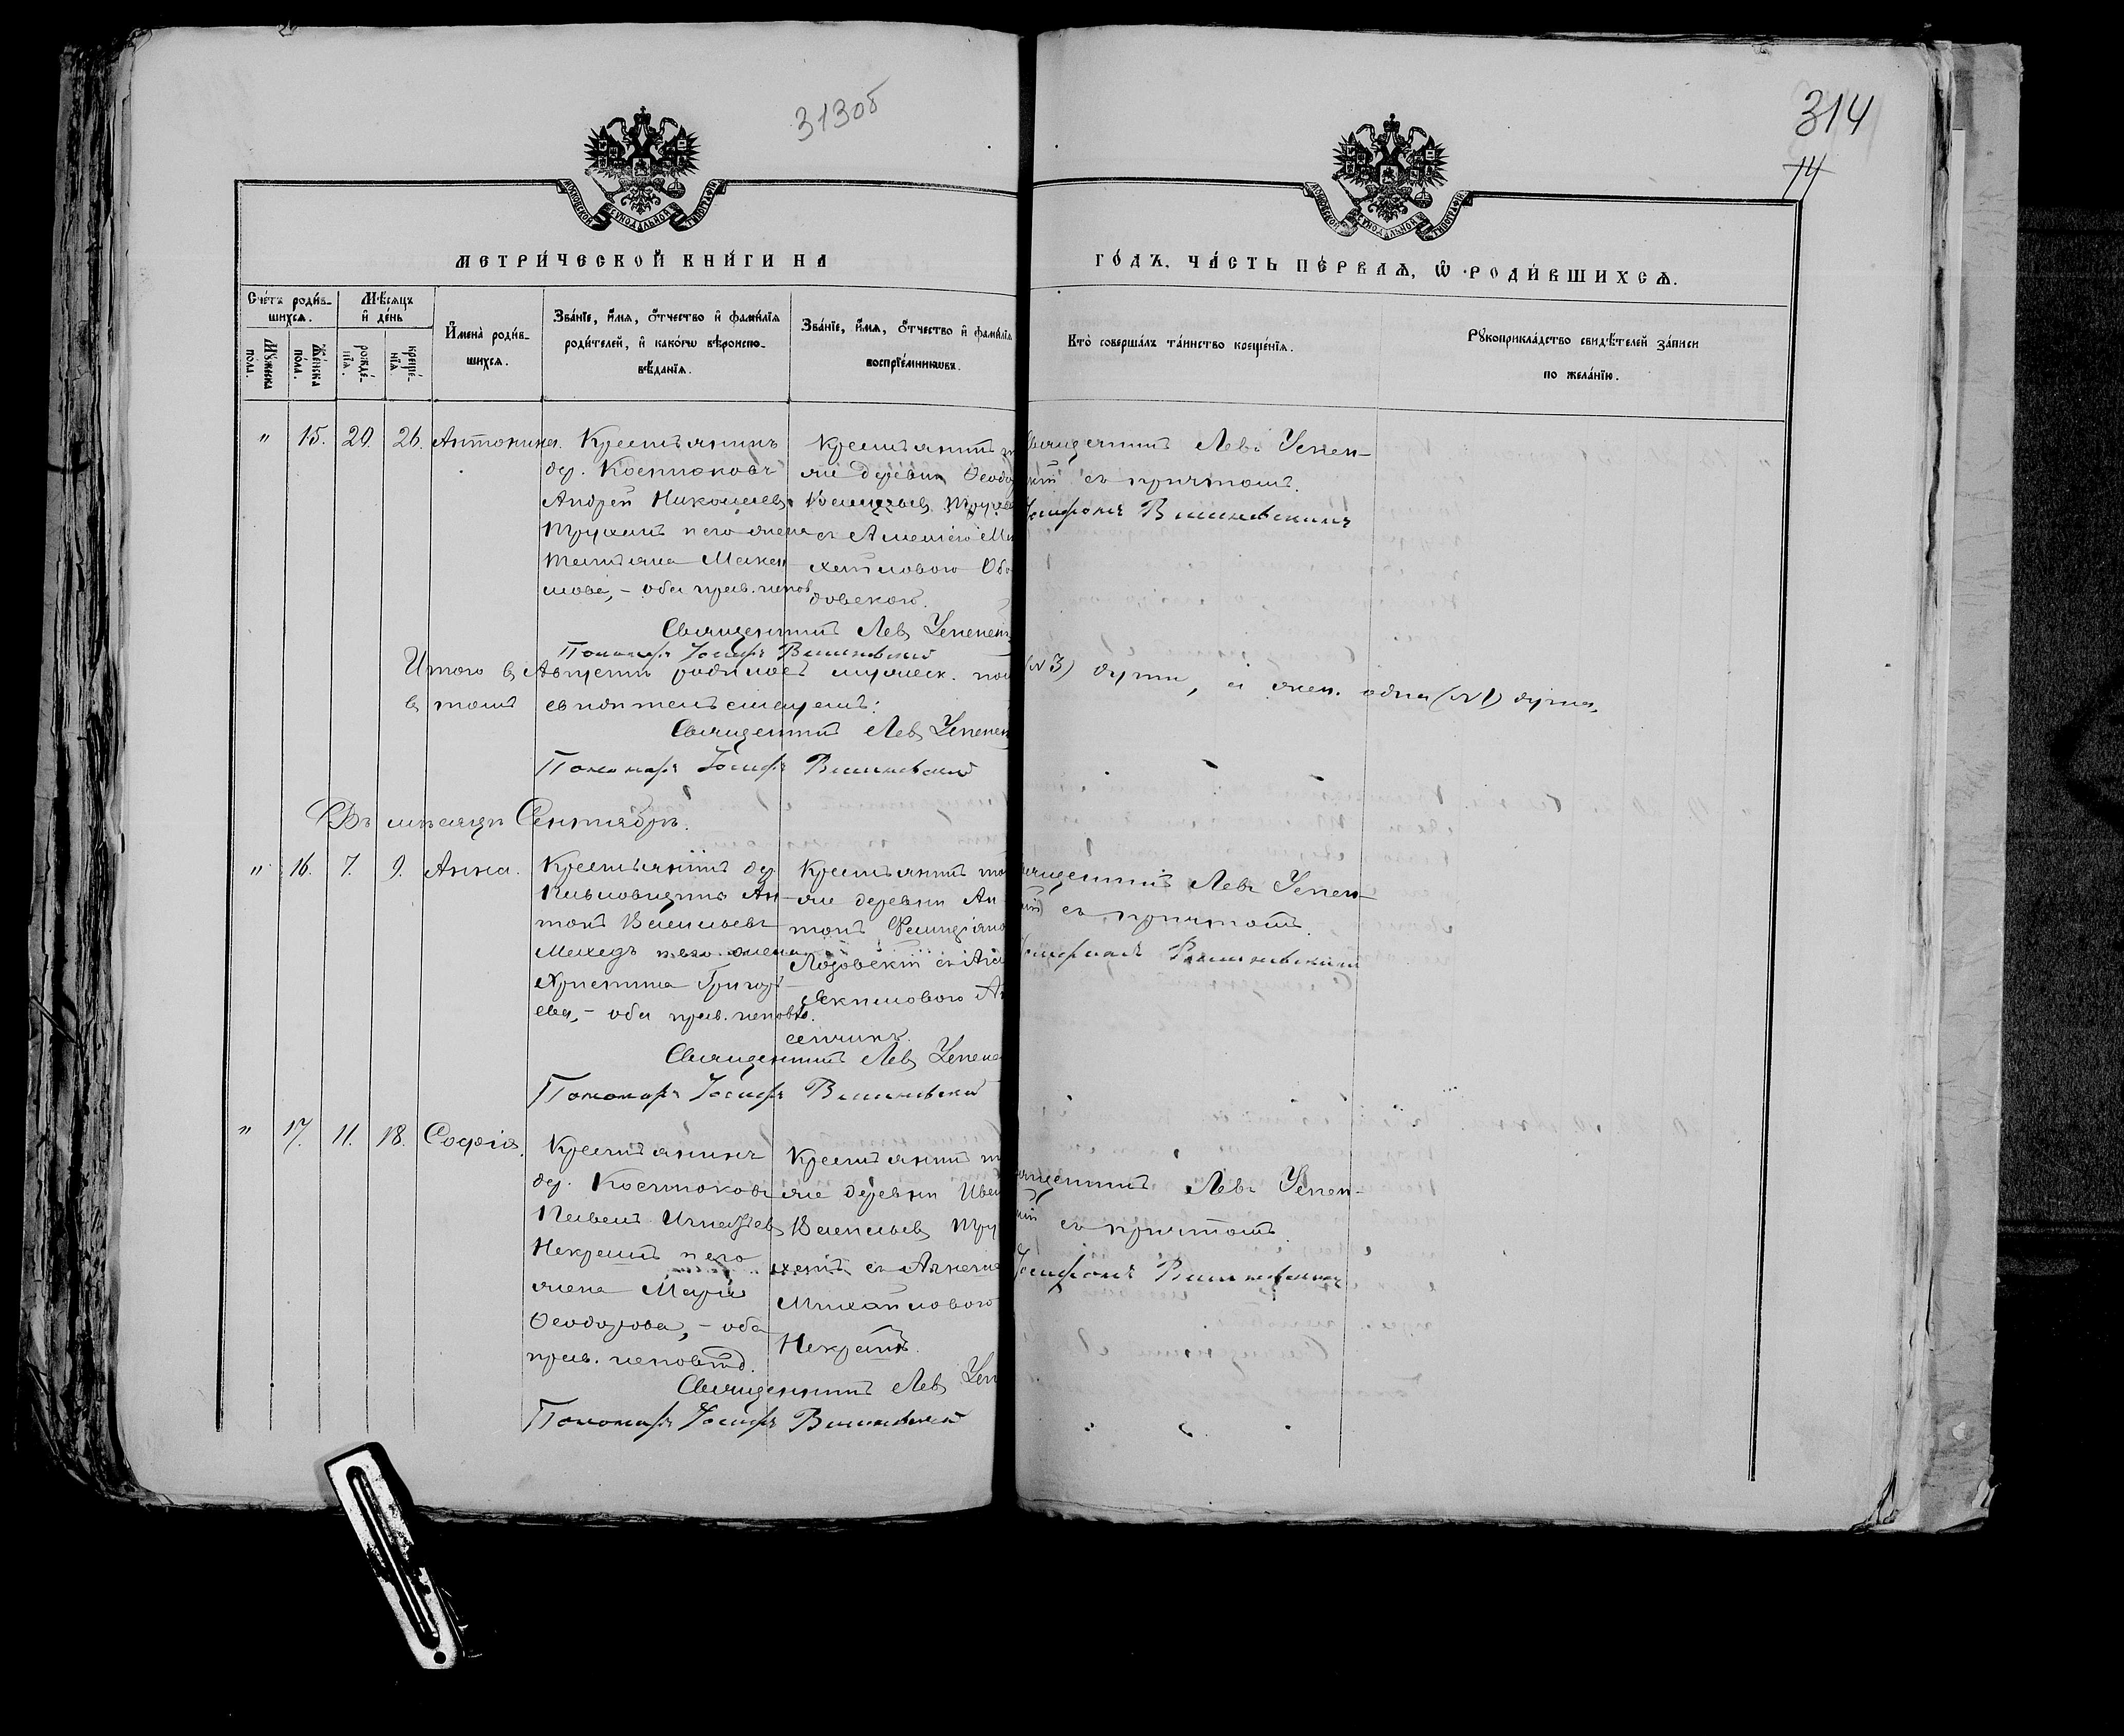 313об
314
14
МЕТРИ́ЧЕСКОЙ КНИ́ГИ НА
ГО́ДЪ, ЧА́СТЬ ПЕ́РВАѦ, Ѡ РОДИ́ВШИХСѦ.
Сче́тъ роди́в-
шихся.
Мѣ́сяцъ
и де́нь
Мꙋ́жеска
по́ла.
Же́нска
по́ла.
рожде́-
нїя.
креще́-
нїя
И҆мена̀ роди́в-
шихся.
Зва́нїе, и҆́мя, ѻ҆́тчество и҆ фами́лїя
роди́телей, и҆ како́гѡ вѣроиспо-
вѣ́данїя.
Зва́нїе, и҆́мя, ѻ҆́тчество и҆ фами́лїя
воспрїе́мникѡвъ.
Кто̀ соверша́лъ та́инство креще́нїя.
Рꙋкоприкла́дство свидѣ́телей за́писи
по жела́нїю.
" 15. 20. 26. Антонина.
Крестьянинъ
дер. Костюковъ
Андрей Николаевъ
Трухан и его жена
Татьяна Макси
мова, – оба прав. испов.
Крестьянин
же деревни Феодо
Васильев
с
Ми
хайловою
довскою.
Священник Лев Успен-
кий съ причтомъ.
Іосифомъ Вишневскимъ
Священник Лев Успенс
Пономарь Іосифъ Вишневский
Итого в Августе родилось мужеск. пол (№ 3) души, а жен. одна (№ 1) душа,
в том свидетельствуем:
Священник Лев Успенс
Пономарь Іосифъ Вишневский
Въ месяце Сентябрѣ.
" 16. 7. 9. Анна.
Крестьянин дер.
Ан
тон Васильевъ
и его жена
Христина Григорь
ева, – оба прав. исповѣд.
Крестьянин той
же деревни Ан
тон
Лозовский
Якимового
Священник Лев Успен-
ский съ причтомъ.
Іосифомъ Вишневским
Священник Лев Успенс
Пономарь Іосифъ Вишневский
" 17. 11. 18. Софія.
Крестьянинъ
дер. Костюковъ
Павел Игнатьев
Некраш и его
жена Марія
Феодорова, – оба
прав. исповѣд.
Крестьянин т
же деревни Иван
Васильев Тру
хан с
Михайлового
Некраш.
Священник Левъ Успен-
ский съ причтом.
Іосифомъ Вишневскимъ
Священник Лев Успен
Пономарь Іосифъ Вишневский